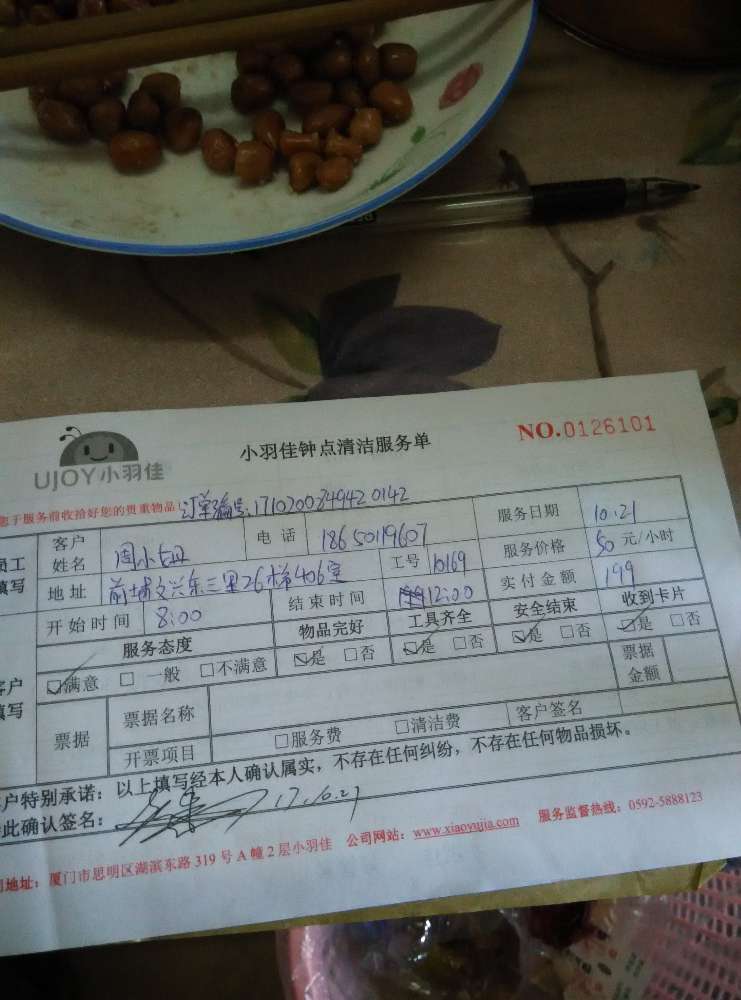 UJOY小羽佳
小羽佳钟点清洁服务单
NO.0126101
您于服务前收拾好您的贵重物品! 订单编号:171020034942 0142
员工填写
客户姓名 周小姐 电话 18650119607 服务日期 10.21
地址 前埔文兴东三里26梯406室 工号 10169 服务价格 50 元/小时
开始时间 8:00 结束时间 12:00 实付金额 199
服务态度 物品完好 工具齐全 安全结束 收到卡片
客户填写
☑满意 □一般 □不满意 ☑是 □否 ☑是 □否 ☑是 □否 ☑是 □否
票据 票据名称 票据金额
开票项目 □服务费 □清洁费 客户签名
户特别承诺:以上填写经本人确认属实,不存在任何纠纷,不存在任何物品损坏。
此确认签名: 17.10.21
地址:厦门市思明区湖滨东路319号A幢2层小羽佳 公司网站:www.xiaoyujia.com 服务监督热线:0592-5888123